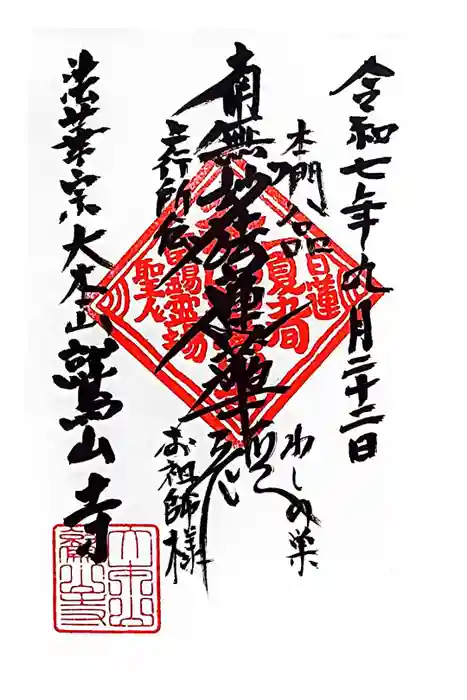 令和七年九月二十二日
本門八品
わしの巣
南無妙法蓮華経
上行所伝
お祖師様
法華宗大本山鷲山寺
日蓮
聖人
霊場
大本山
鷲山寺